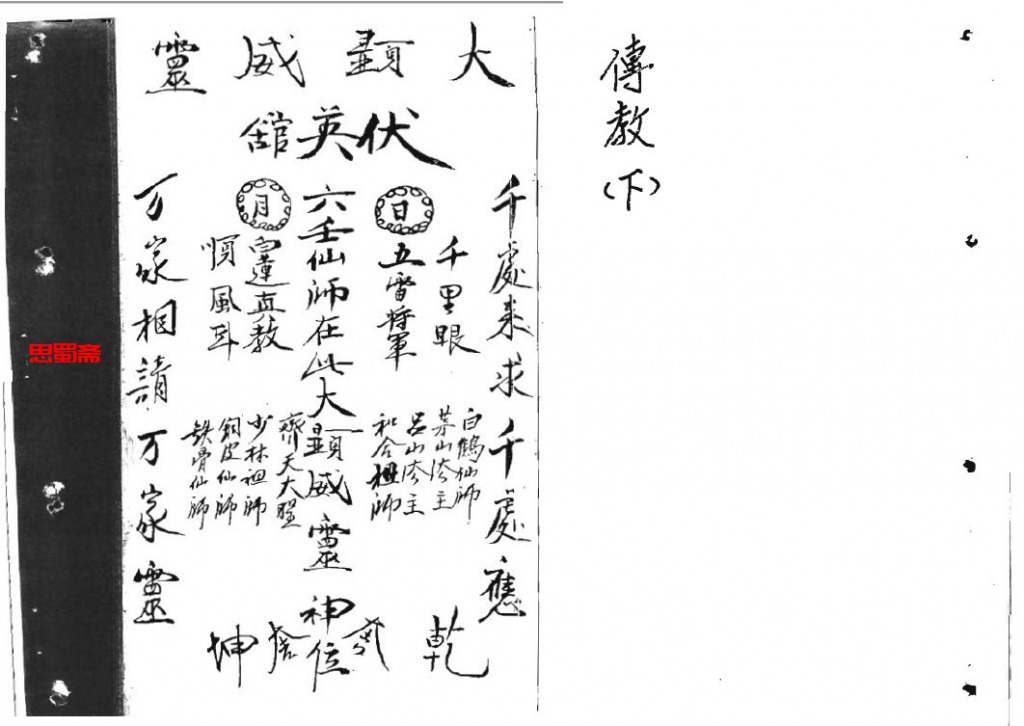 傳教
(下)
大顯威靈
伏英舘
千處來求千處應
千里眼
日
五雷將軍
白鶴仙師
茅山法主
吕山法主
和合祖師
六壬仙師在此大顯威靈神位
月
真教
順風耳
齊天大聖
少林祖師
銅皮仙師
鉄骨仙師
万家相請万家靈
乾
坤
思蜀斋